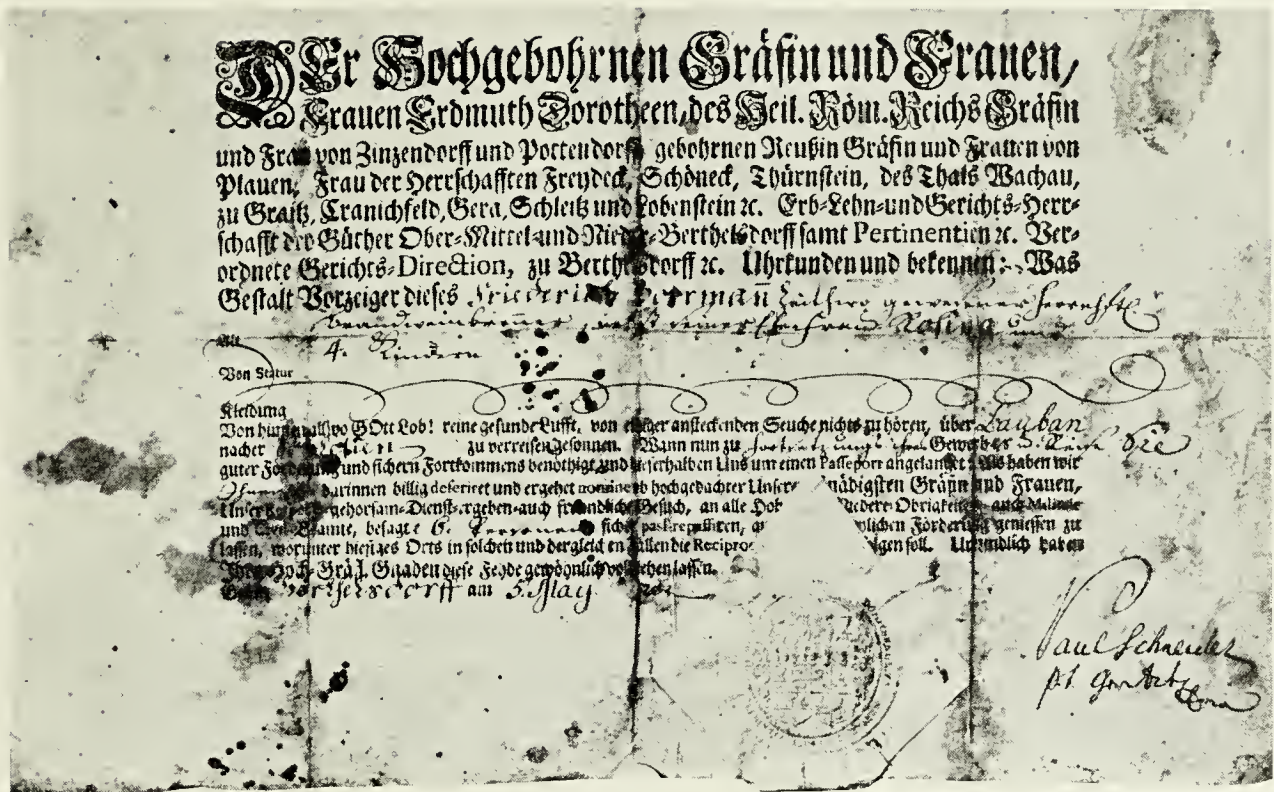 DEr Hochgebohrnen Gräfin und Frauen,
Frauen Erdmuth Dorotheen, des Heil. Röm. Reichs Gräfin
und Frau von Zinzendorff und Pottendorff gebohrnen Reußin Gräfin und Frauen von
Plauen, Frau der Herrschafften Freydeck, Schöneck, Thürnstein, des Thals Wachau,
zu Graitz, Cranichfeld, Gera, Schleitz und Lobenstein ꝛc. Erb-Lehn-und Gerichts-Herr-
schafft der Güther Ober-Mittel-und Nieder-Berthelsdorff samt Pertinentien ꝛc. Ver-
ordnete Gerichts-Direction, zu Berthelsdorff ꝛc. Uhrkunden und bekennen: Was
Gestalt Vorzeiger dieses Friederich gewesener
Rosina und
Alt 4. Kindern
Von Statur
Kleidung
Von hier allwo GOtt Lob! reine gesunde Lufft, von einiger ansteckenden Seuche nichts zu hören, über Lauban
nacher zu verreisen gesonnen. Wann nun zu Gewerbes
guter und sichern Fortkommens benöthigt und dieserhalben Uns um einen Passeport angelanget: Als haben wir
darinnen billig deferiret und ergehet nomine hochgedachter Unser Gnädigsten Gräfin und Frauen,
Unser gehorsam-Dienst-ergeben-auch freundliches Gesuch, an alle Hoh Niedere Obrigkeiten auch
und Civil-Beamte, besagte 6. Personen Förderung geniessen zu
lassen, worunter hiesiges Orts in solchen und dergleichen Fällen die Recipro lgen soll. Uhrkundlich haben
Ihro Hoch-Gräfl. Gnaden diese gewöhnlich vollziehen lassen.
Berthelsdorff am 5. May
Paul Schneider